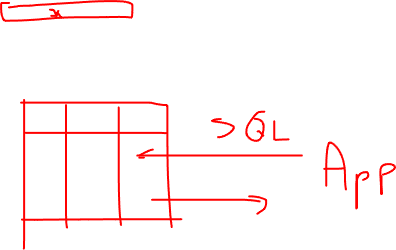 x
SQL
App